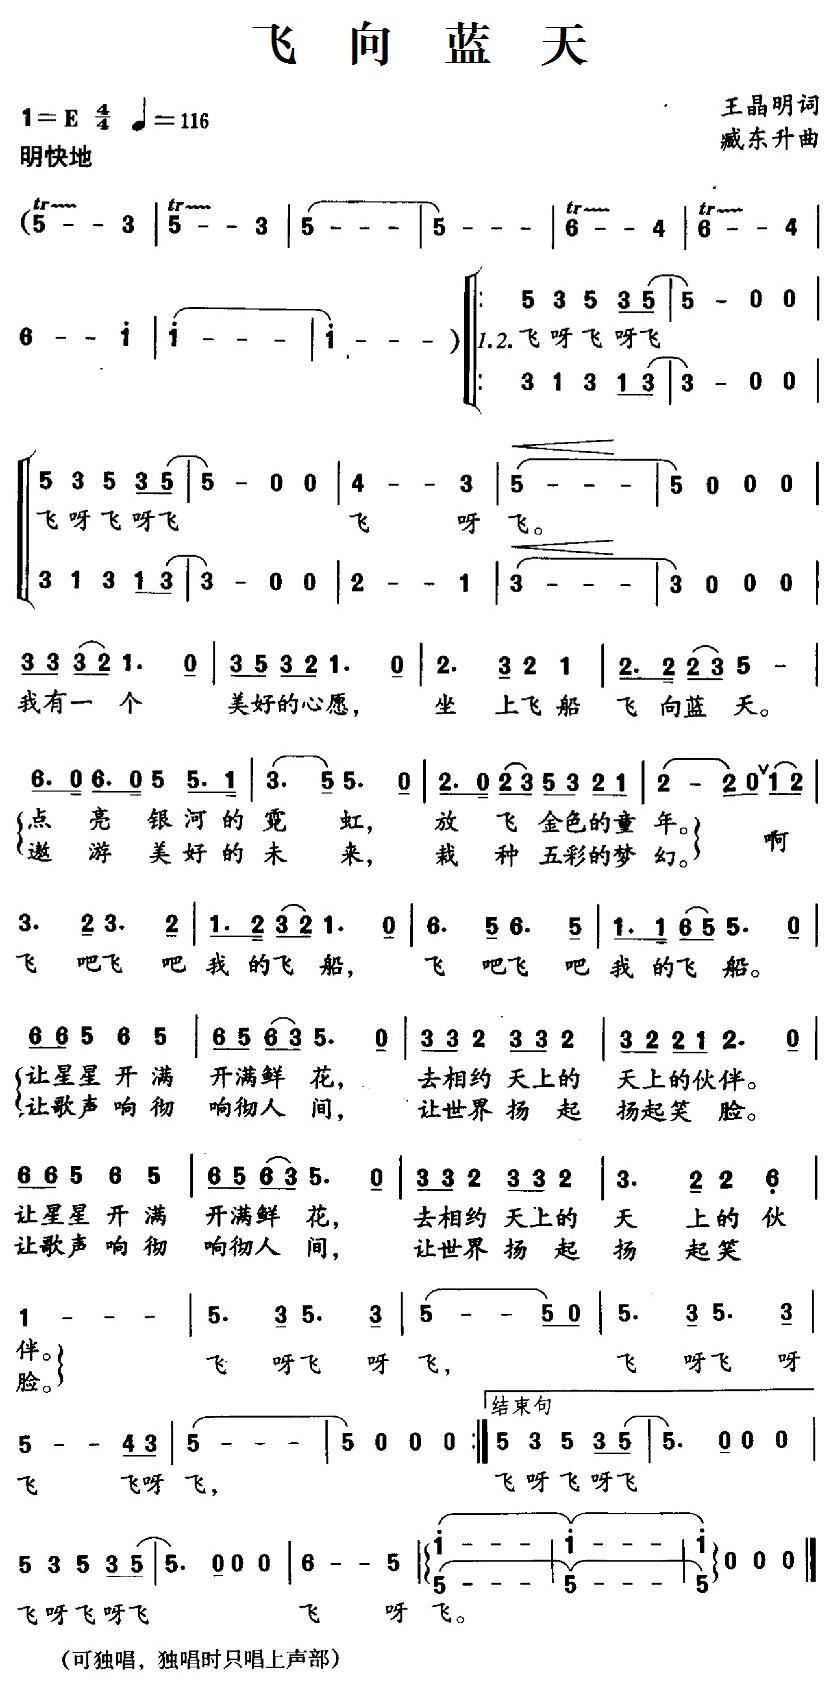 飞 向 蓝 天
1=E 4/4 ♩=116
王晶明词
明快地
臧东升曲
(5 - - 3 | 5 - - 3 | 5 - - - | 5 - - - | 6 - - 4 | 6 - - 4 |
tr tr tr tr
6 - - i | i - - - | i - - - ) 
5 3 5 3 5 | 5 - 0 0 |
1.2. 飞 呀 飞 呀 飞
3 1 3 1 3 | 3 - 0 0 |
5 3 5 3 5 | 5 - 0 0 | 4 - - 3 | 5 - - - | 5 0 0 0 |
飞 呀 飞 呀 飞 飞 呀 飞。
3 1 3 1 3 | 3 - 0 0 | 2 - - 1 | 3 - - - | 3 0 0 0 |
3 3 3 2 1. 0 | 3 5 3 2 1. 0 | 2. 3 2 1 | 2. 2 2 3 5 - |
我有一 个 美好的心愿， 坐 上飞 船 飞 向蓝 天。
6. 0 6. 0 5 5. 1 | 3. 5 5. 0 | 2. 0 2 3 5 3 2 1 | 2 - 2 0 ∨ 1 2 |
点 亮 银 河 的 霓 虹， 放 飞 金色的童 年。 啊
遨 游 美 好 的 未 来， 栽 种 五彩的梦 幻。
3. 2 3. 2 | 1. 2 3 2 1. 0 | 6. 5 6. 5 | 1. 1 6 5 5. 0 |
飞 吧飞 吧 我 的飞 船， 飞 吧飞 吧 我 的飞 船。
6 6 5 6 5 | 6 5 6 3 5. 0 | 3 3 2 3 3 2 | 3 2 2 1 2. 0 |
让星星 开 满 开满鲜 花， 去相约 天上的 天上的伙伴。
让歌声 响 彻 响彻人 间， 让世界 扬 起 扬起笑 脸。
6 6 5 6 5 | 6 5 6 3 5. 0 | 3 3 2 3 3 2 | 3. 2 2 6 |
让星星 开 满 开满鲜 花， 去相约 天上的 天 上的 伙
让歌声 响 彻 响彻人 间， 让世界 扬 起 扬 起笑
1 - - - | 5. 3 5. 3 | 5 - - 5 0 | 5. 3 5. 3 |
伴。 飞 呀飞 呀 飞， 飞 呀飞 呀
脸。
结束句
5 - - 4 3 | 5 - - - | 5 0 0 0 :| 5 3 5 3 5 | 5. 0 0 0 |
飞 飞呀 飞， 飞 呀 飞 呀飞
5 3 5 3 5 | 5. 0 0 0 | 6 - - 5 | i - - - | i - - - | i 0 0 0 ‖
5 - - - 5 - - - 5
飞 呀飞 呀飞 飞 呀 飞。
(可独唱，独唱时只唱上声部)